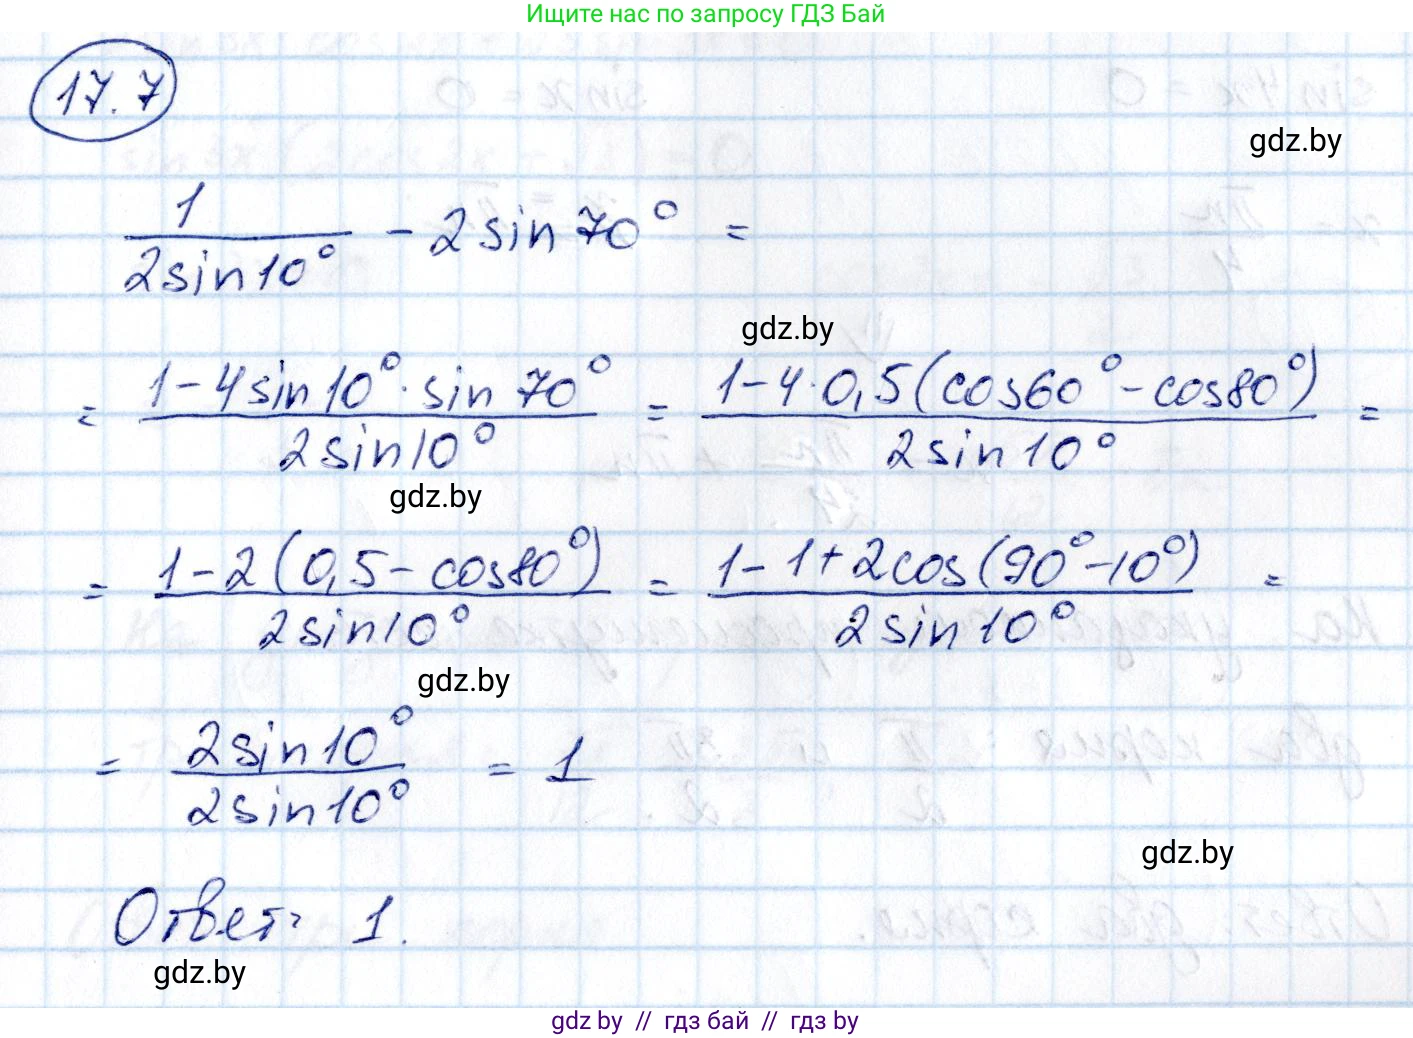 Ищите нас по запросу ГДЗ Бай
17.7
gdz.by
1/(2sin10°) - 2sin70° =
gdz.by
= (1-4sin10°·sin70°)/(2sin10°) = (1-4·0,5(cos60°-cos80°))/(2sin10°) =
gdz.by
= (1-2(0,5-cos80°))/(2sin10°) = (1-1+2cos(90°-10°))/(2sin10°) =
gdz.by
= (2sin10°)/(2sin10°) = 1
gdz.by
Ответ: 1.
gdz.by
gdz by // гдз бай // гдз by